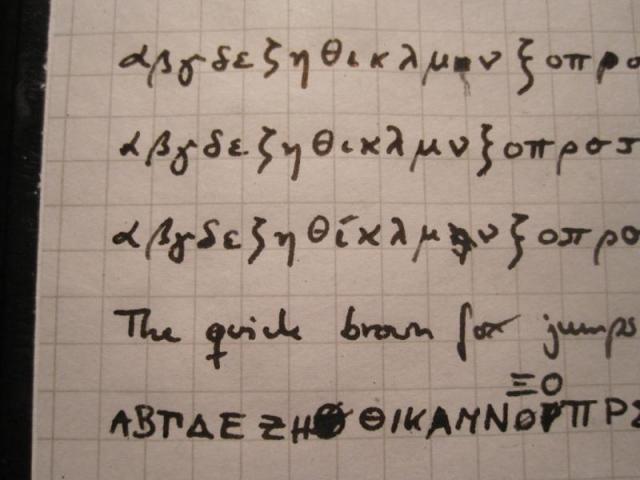 αβγδεζηθικλμνξοπρσ
αβγδεζηθικλμνξοπρστ
αβγδεζηθίκλμνξοπρσ
The quick brown fox jumps
ΞΟ
ΑΒΓΔΕΖΗΘΙΚΛΜΝΟΠΡΣ